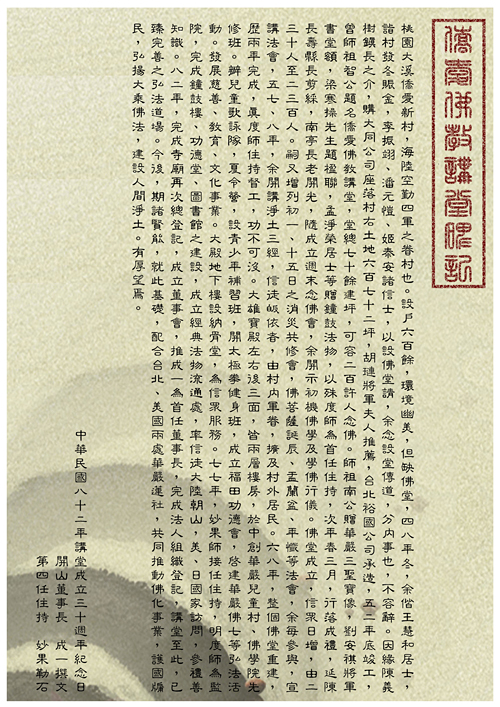 僑愛佛教講堂碑記
桃園大溪僑愛新村，海陸空勤四軍之眷村也。設戶六百餘，環境幽美，但缺佛堂，四八年冬，余偕王慧和居士，
詣村發冬賑金，李振翊、潘元愷、姬泰安諸信士，以設佛堂請，余念設堂傳道，分內事也，不容辭。因緣陳義
樹鎮長之介，購大同公司座落村右土地六百七十二坪，胡璉將軍夫人推薦，台北裕國公司承造，五二年底竣工，
曾師祖智公題名僑愛佛教講堂，堂總七十餘建坪，可容二百許人念佛。師祖南公贈華嚴三聖寶像，劉安祺將軍
書堂額，梁寒操先生題楹聯，孟淨榮居士等贈鐘鼓法物，以殊度師為首任住持，次年春三月，行落成禮，延陳
長壽縣長剪綵，南亭長老開光，隨成立週末念佛會，余開示初機佛學及學佛行儀。佛堂成立，信眾日增，由二
三十人至二三百人。嗣又增列初一、十五日之消災共修會，佛菩薩誕辰、盂蘭盆、平懺等法會，余每參與，宣
講法會，五七、八年，余開講淨土三經，信徒皈依者，由村內軍眷，擴及村外居民。六八年，整個佛堂重建，
歷兩年完成，真度師住持督工，功不可沒。大雄寶殿左右後三面，皆兩層樓房，於中創華嚴兒童村、佛學院先
修班。辦兒童歌詠隊，夏令營，設青少年補習班，開太極拳健身班，成立福田功德會，啓建華嚴佛七等弘法活
動。發展慈善、教育、文化事業。大殿地下樓設納骨堂，為信眾服務。七七年，妙果師接任住持，明度師為監
院，完成鐘鼓樓、功德堂、圖書館之建設，成立經典法物流通處，率信徒大陸朝山，美、日國家訪問，參禮善
知識。八二年，完成寺廟再次總登記，成立董事會，推成一為首任董事長，完成法人組織登記，講堂至此，已
臻完善之弘法道場。今後，期諸賢歟，就此基礎，配合台北、美國兩處華嚴蓮社，共同推動佛化事業，護國牖
民，弘揚大乘佛法，建設人間淨土。有厚望焉。
中華民國八十二年講堂成立三十週年紀念日
開山董事長　成一撰文
第四任住持　妙果勒石